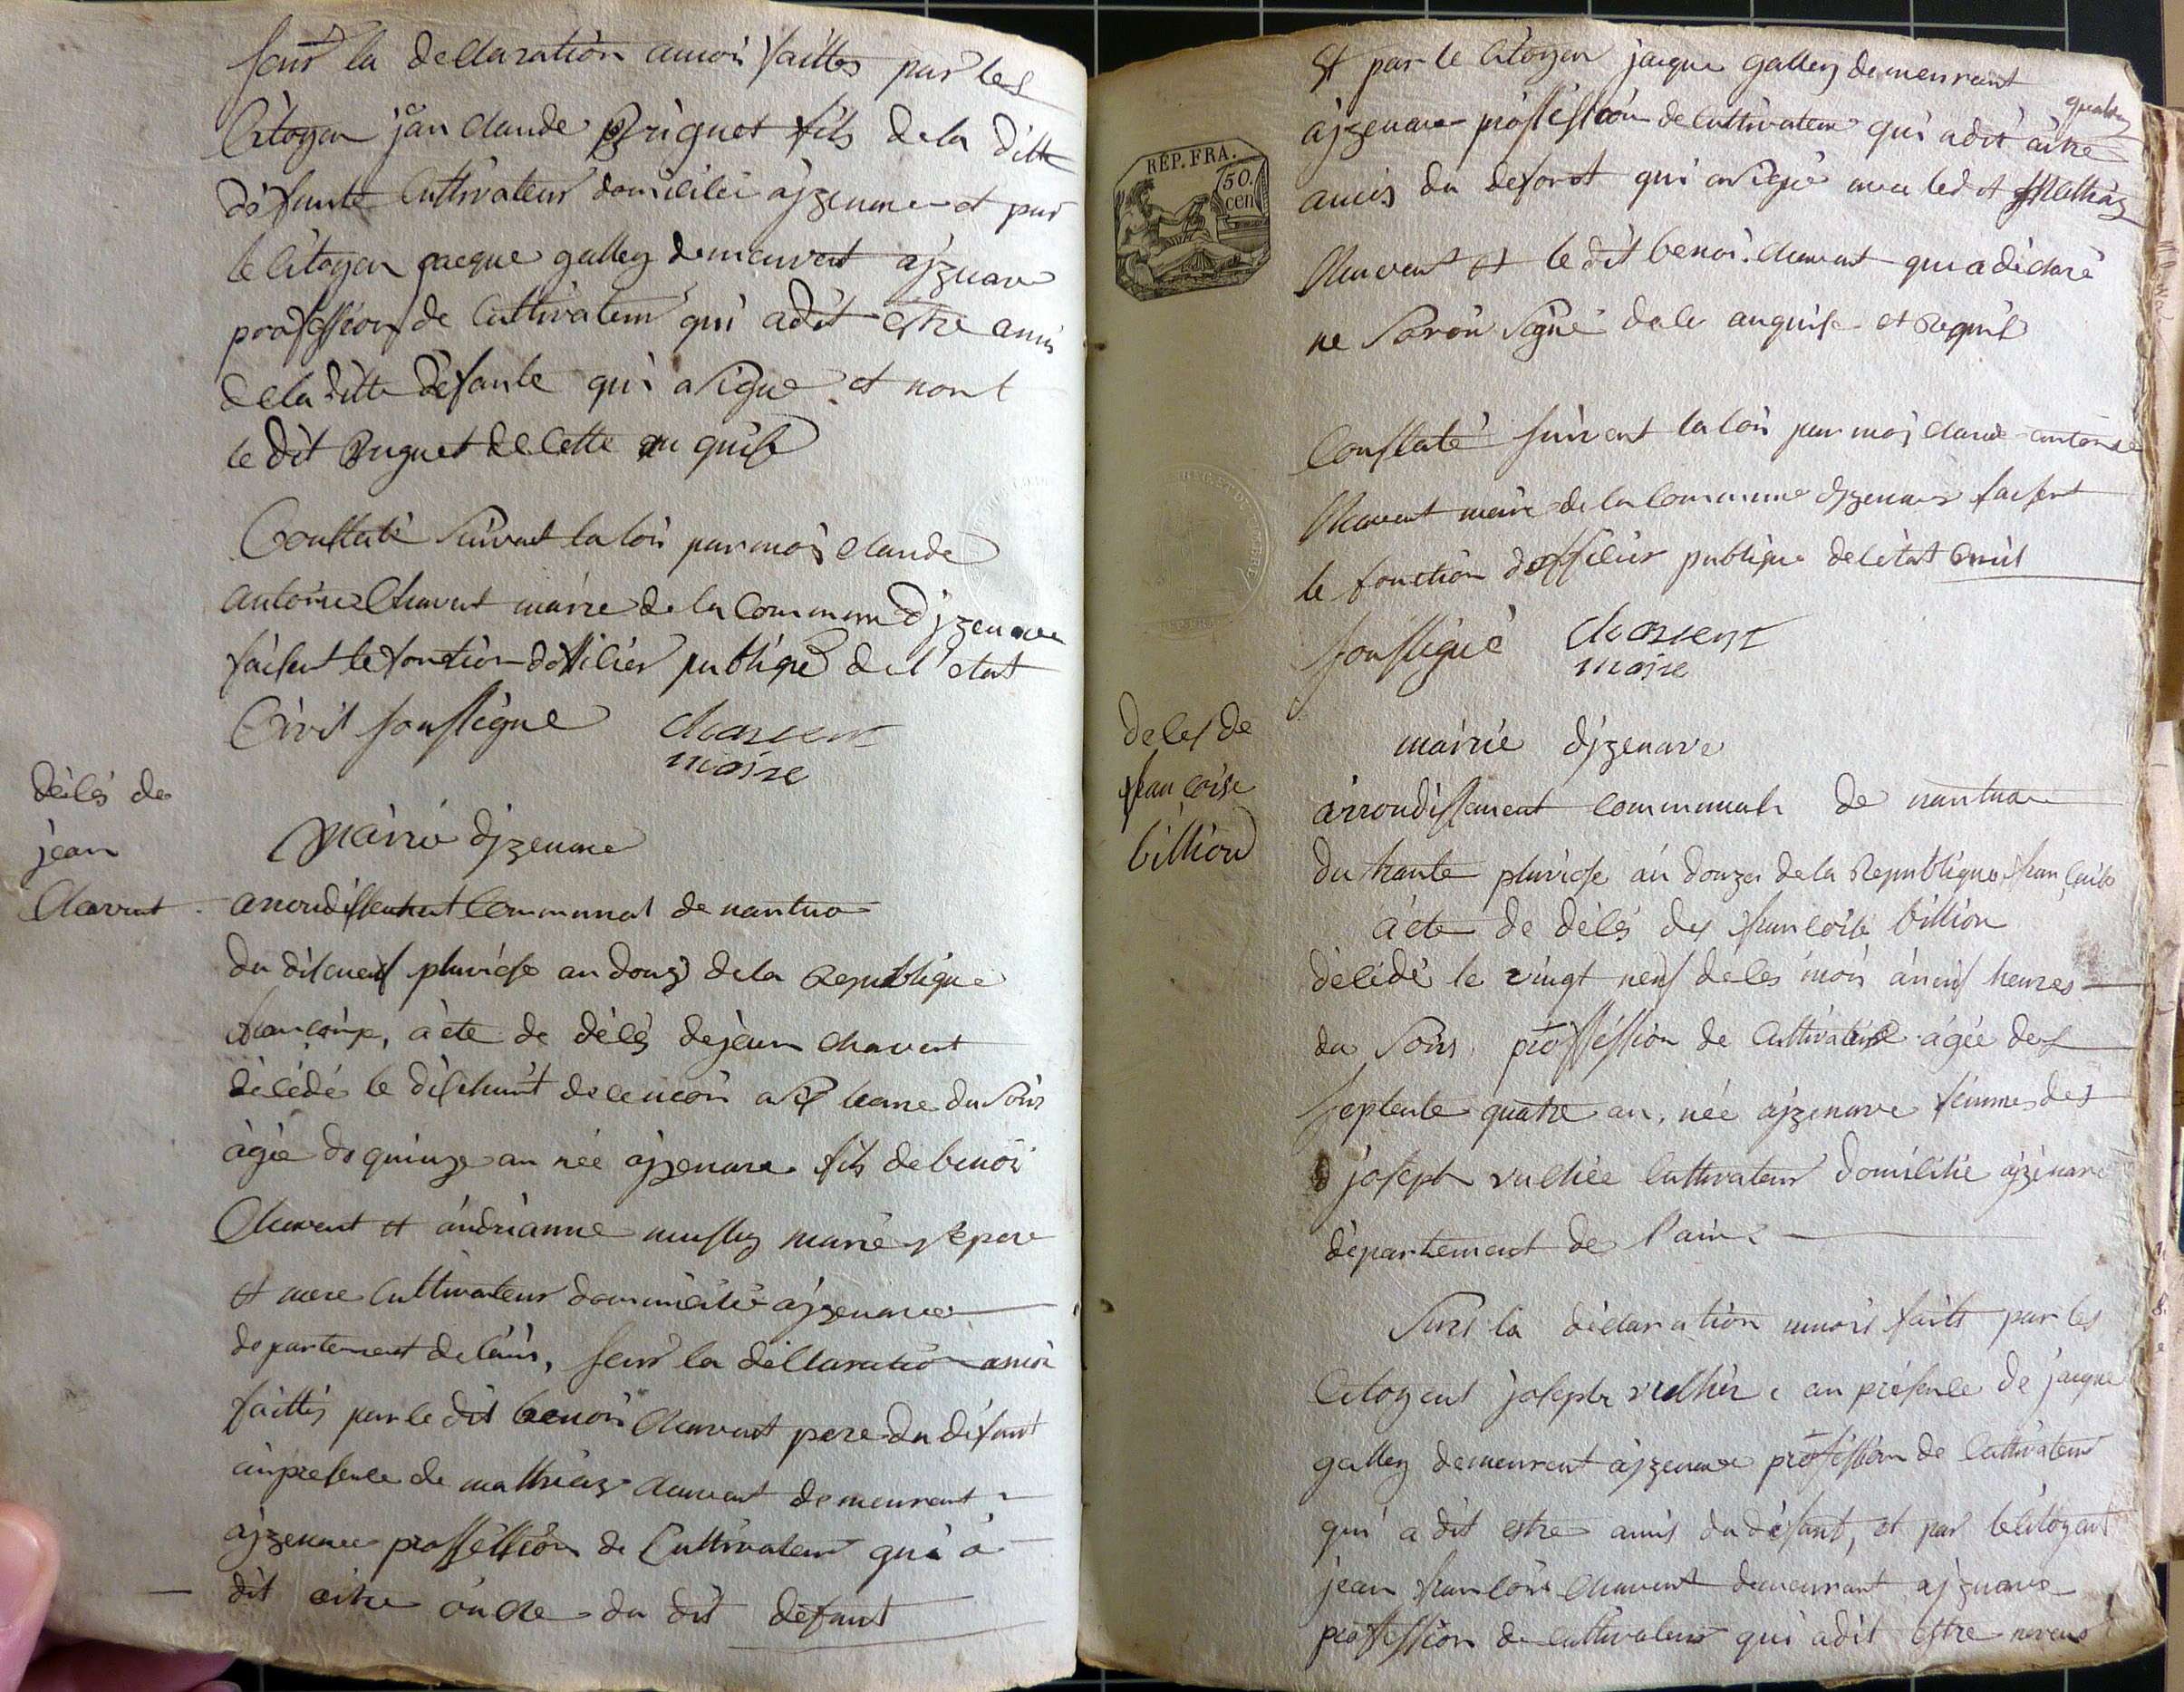 sur la dellaration amoi faittes par les
Citoyen jan claude Briguet fils de la ditte
défunte Cultivateur domicilié ajzenave et par
le Citoyen jacque galley demeurent ajzenave
proffession de Cultivateur qui adit estre amis
de la ditte défunte qui a signe et nont
le dit Briguet de Cette en quise
Constaté suivant la loi par moi Claude
antoine Chavent maire de la Commune djzenave
faisent le fonction dofficier publique de l'etat
Civil soussigne chavent
maire
délés de
jean
Chavent
Mairie djzenave
arrondissement Communal de nantua
du disneuf pluviose an douze dela Republique
francoise, acte de délés de jean chavent
délédé le dishuit de ce mois a six heure du soir
àgée de quinze an née ajzenave fils de benoi
Chavent et andrianne mussy marié pere
et mere Cultivateur domicilié ajzenave
departement de lain, sur la dellaration amoi
faittes par le dit benoi Chavent pere du défunt
enpresence de mathieu chavent demeurent
ajzenave proffession de Cultivateur qui a
dit aitre oncle du dit defunt
Et par le Citoyen jaque galley demeurent
ajzenave proffession de Cultivateur qui adit aitre
amis du defont qui a signé avec led
Chavent et le dit benoi chavent qui a déclaré
ne savoir signé dele anquise et Requis
REP. FRA.
50.
cen
Constaté suivent la loi par moj claude antoine
Chavent maire de la Commune djzenave faisent
le fonction dofficier publique de létat Civil
soussigné chavent
maire
deles de
francoise
billion
mairie djzenave
arrondissement Communale de nantua
du trante pluviose an douze de la Republique francaise
acte de délés des francoise billion
délédé le vingt neuf de ces mois a neuf heures
du soir proffession de Cultivateur agée des
septente quatre an, née ajzenave femme des
joseph vuchée Cultivateur domicilié ajzenave
département de l'ain
Sur la déclaration amois faits par les
Citoyent joseph en présence de jaque
galley demeurent ajzenave proffession de Cultivateur
qui a dit estre amis du défunt, et par le citoyent
jean francois chavent demeurrant ajzenave
proffession de cultivateur qui adit estre neveus